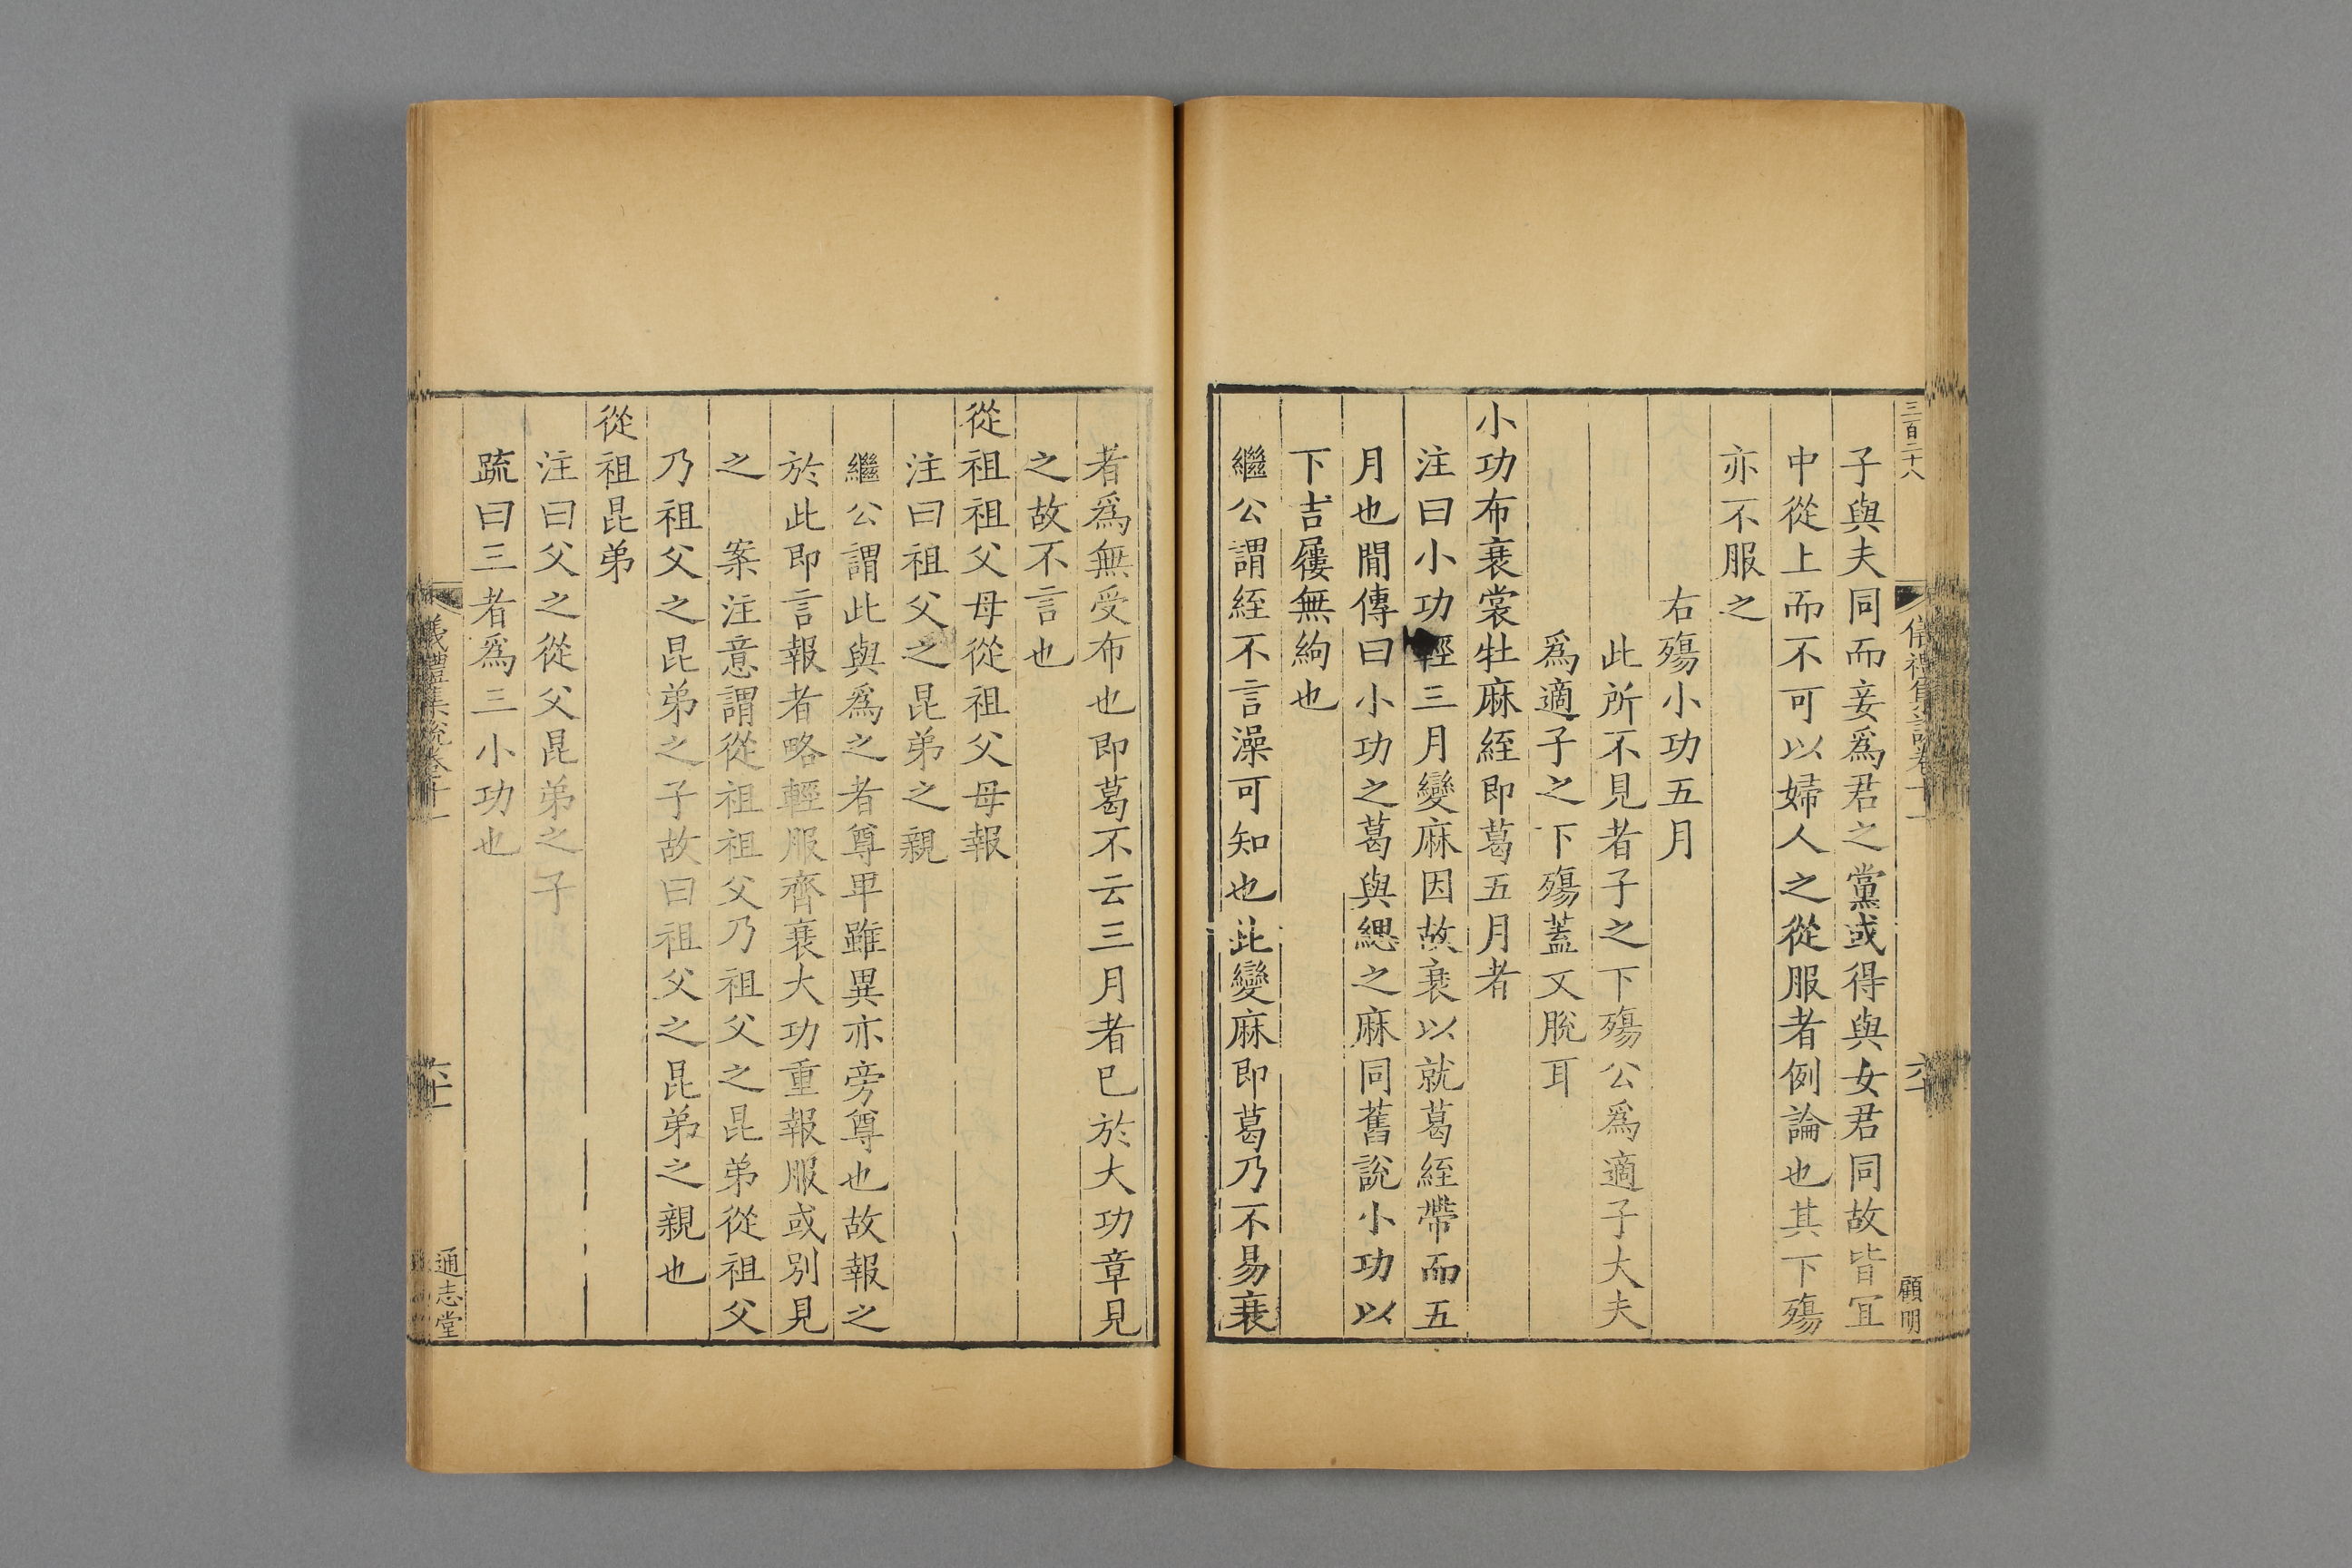 三百二十八
顧明
子與夫同而妾爲君之黨或得與女君同故皆冝
中從上而不可以婦人之從服者例論也其下殤
亦不服之
右殤小功五月
此所不見者子之下殤公爲適子大夫
爲適子之下殤蓋又脫耳
小功布衰裳牡麻絰即葛五月者
注曰小功輕三月變麻因故衰以就葛絰帶而五
月也間傳曰小功之葛與緦之麻同舊說小功以
下吉屨無絇也
繼公謂絰不言澡可知也此變麻即葛乃不易衰
者爲無受布也即葛不云三月者巳於大功章見
之故不言也
從祖祖父母從祖父母報
注曰祖父之昆弟之親
繼公謂此與爲之者尊卑雖異亦旁尊也故報之
於此即言報者略輕服齊衰大功重報服或別見
之　案注意謂從祖祖父乃祖父之昆弟從祖父
乃祖父之昆弟之子故曰祖父之昆弟之親也
從祖昆弟
注曰父之從父昆弟之子
疏曰三者爲三小功也
儀禮集說卷十一
通志堂